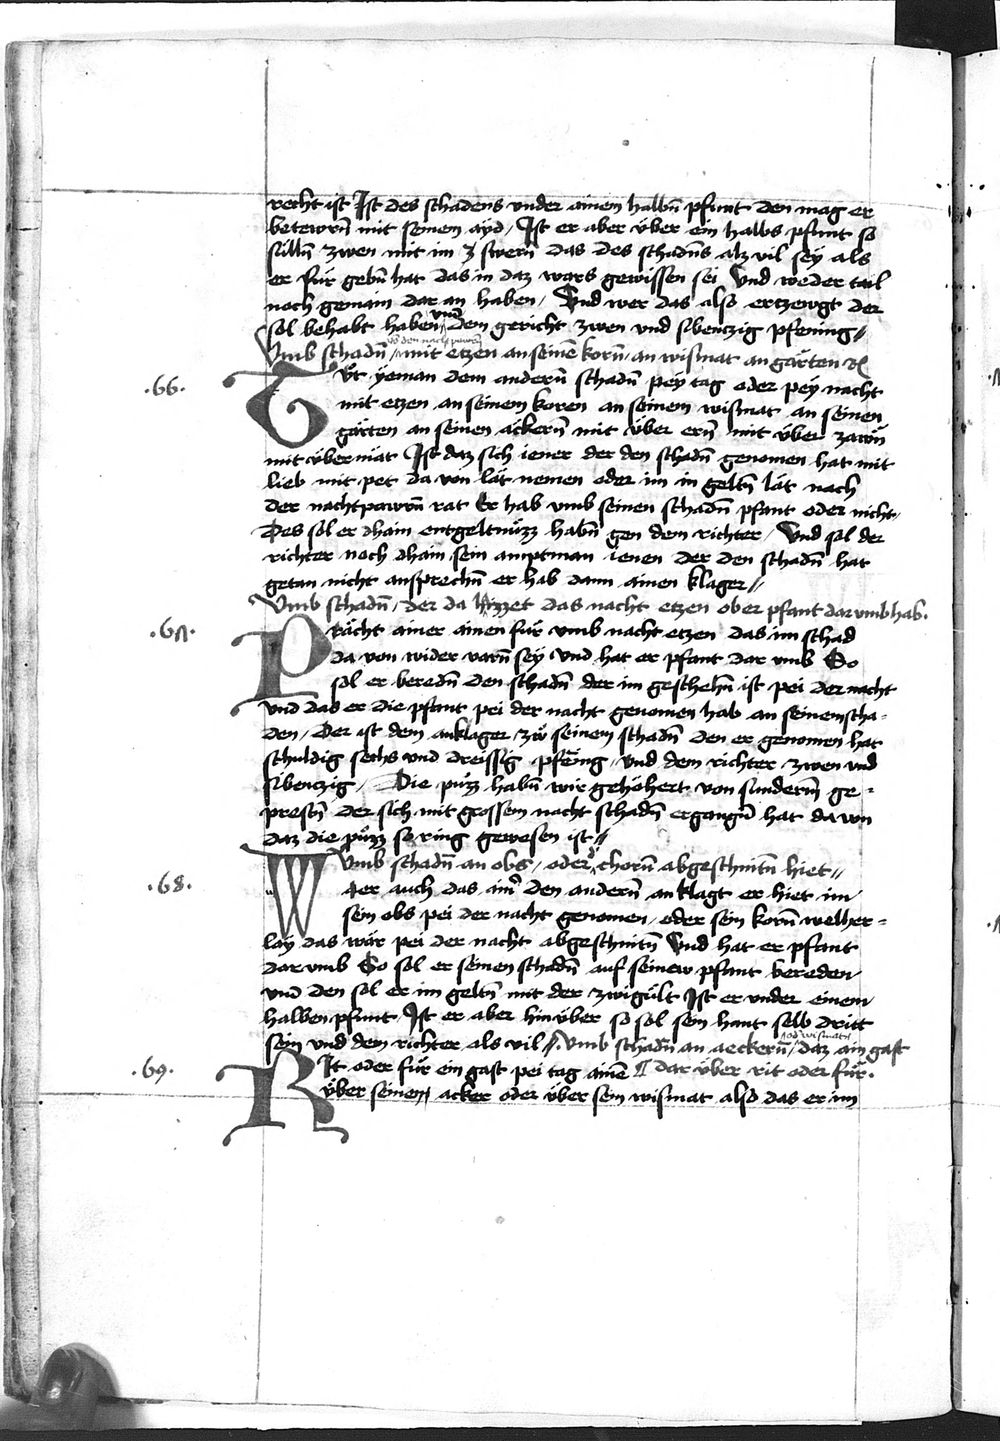 recht ist Ist des schadens under ainen halbn̄ pfunt den mag er
beteẅrn̄ mit seinem ayd / Ist er aber über ein halbs pfunt so
sulln̄ zwen mit im swern̄ das des schadn̄s alz vil seÿ als
er für gebn̄ hat das in daz wars gewissen sei Und weder tail
noch gemain dar an haben / Und wer das also ertzewgt der
sol behabt haben und dem gericht zwen und sibenczig pfening //
Umb schadn̄ / mit etzen an seinē korn̄ / an wismat an gärten
.66. Tŭt ÿeman dem andern̄ schadn̄ peÿ tag oder peÿ nacht
mit etzen an seinem koren an seinem wismat an seinen
gärten an seinen äckern̄ mit über ern̄ mit über zäwn̄
mit übermät Ist daz sich iener der den schadn̄ genomen hat mit
lieb mit pet da von lät nemen oder im in geltn̄ lät nach
der nachtpawrn̄ rat Er hab umb seinen schadn̄ pfant oder nicht /
Des sol er dhain entgeltnüzz habn̄ gen dem richter / Und sol der
richter noch dhain sein amptman ienen der den schadn̄ hat
getan nicht ansprechn̄ er hab dann ainen klager //
Umb schadn̄ / der da hizzet das nacht etzen ober pfant dar umb hab.
.67. Prächt ainer ainen für umb nacht etzen das im schad
da von wider varn̄ seÿ Und hat er pfant dar umb So
sol er beredn̄ den schadn̄ der im geschehn̄ ist pei der nacht
und das er die pfant pei der nacht genomen hab an seinem scha=
den / Der ist dem anklager zŭ seinem schadn̄ den er genomen hat
schuldig sechs und dreissig pfēing / und dem richter zwen und
sibenczig / Die pŭzz habn̄ wir gehöhert von sunderm̄ ge=
prestn̄ der sich mit grossem nacht schadn̄ ergangn̄ hat da von
daz die pŭzz so ring gewesen ist //
Umb schadn̄ an obs / oder chorn̄ abgeschnitn̄ hiet //
.68. Wer auch das ain̄ den andern̄ anklagt er hiet im
sein obs pei der nacht genomen / oder sein korn̄ welher=
läÿ das wär pei der nacht abgeschnitn̄ Und hat er pfant
dar umb So sol er seinen schadn̄ auf seinew pfant bereden
und den sol er im geltn̄ mit der zwigült Ist er under einem
halben pfunt Ist er aber hin über so sol sein hant selb dritt
sein und dem richter als vil // . Umb schadn̄ an aeckern̄ / od wismat / daz ain gast
.69. Rit oder für ein gast pei tag ainē ¶ dar über rit oder für.
über seinen acker oder über sein wismat also das er im